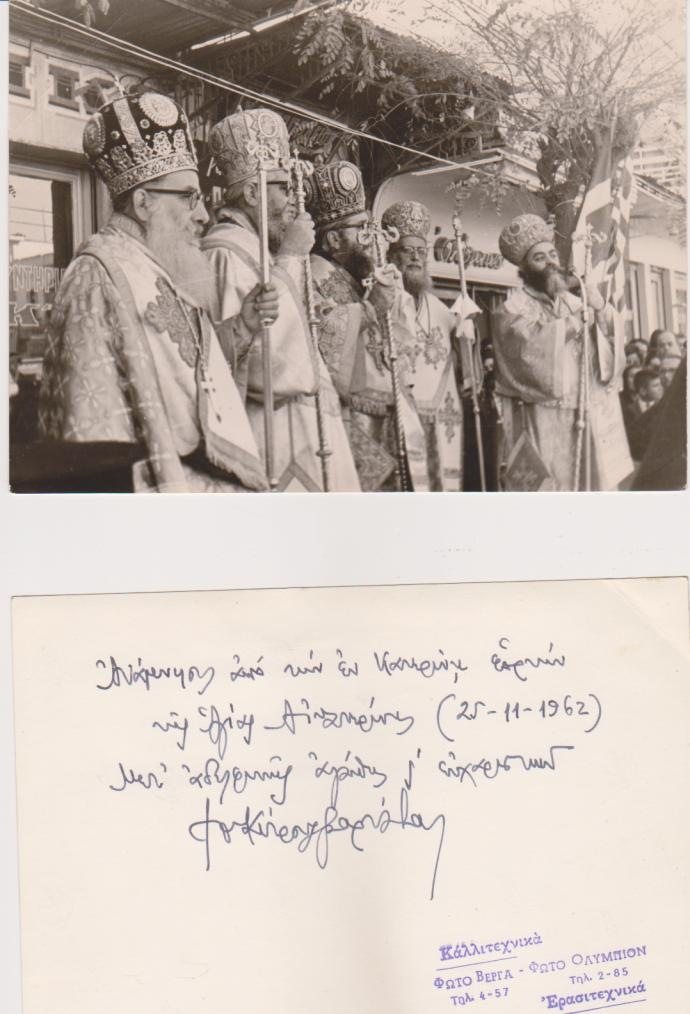 ΥΝΤΗΡΙ
"Κ"
Ἀνάμνησις ἀπό τήν ἐν Κατερίνῃ ἑορτήν
τῆς Ἁγίας Αἰκατερίνης (25-11-1962)
Μετ' ἀδελφικῆς ἀγάπης & εὐχαριστιῶν
Καλλιτεχνικά
Φωτο Βεργα - Φωτο Ολυμπιον
Τηλ. 4-57 Τηλ. 2-85
Ἐρασιτεχνικά